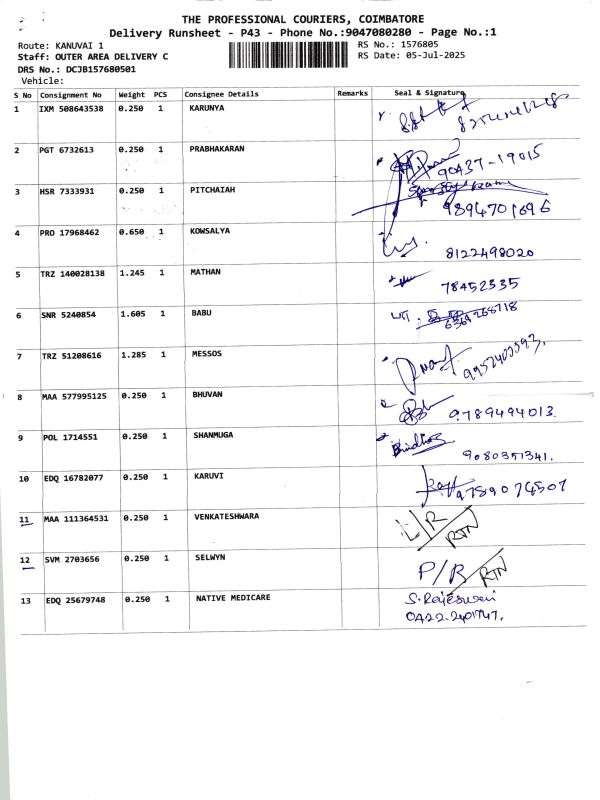 THE PROFESSIONAL COURIERS, COIMBATORE
Delivery Runsheet - P43 - Phone No.:9047080280 - Page No.:1
Route: KANUVAI 1 RS No.: 1576805
Staff: OUTER AREA DELIVERY C RS Date: 05-Jul-2025
DRS No.: DCJB157680501
Vehicle:
S No Consignment No Weight PCS Consignee Details Remarks Seal & Signature
1 IXM 508643538 0.250 1 KARUNYA
2 PGT 6732613 0.250 1 PRABHAKARAN 90437-19015
3 HSR 7333931 0.250 1 PITCHAIAH 9894701696
4 PRO 17968462 0.650 1 KOWSALYA 8122498020
5 TRZ 140028138 1.245 1 MATHAN 78452335
6 SNR 5240854 1.605 1 BABU
7 TRZ 51208616 1.285 1 MESSOS
8 MAA 577995125 0.250 1 BHUVAN 9789494013.
9 POL 1714551 0.250 1 SHANMUGA 9080351341.
10 EDQ 16782077 0.250 1 KARUVI 9789074507
11 MAA 111364531 0.250 1 VENKATESHWARA L/R/RTN
12 SVM 2703656 0.250 1 SELWYN P/R/RTN
13 EDQ 25679748 0.250 1 NATIVE MEDICARE S.Rajeswari
0422-2401747.